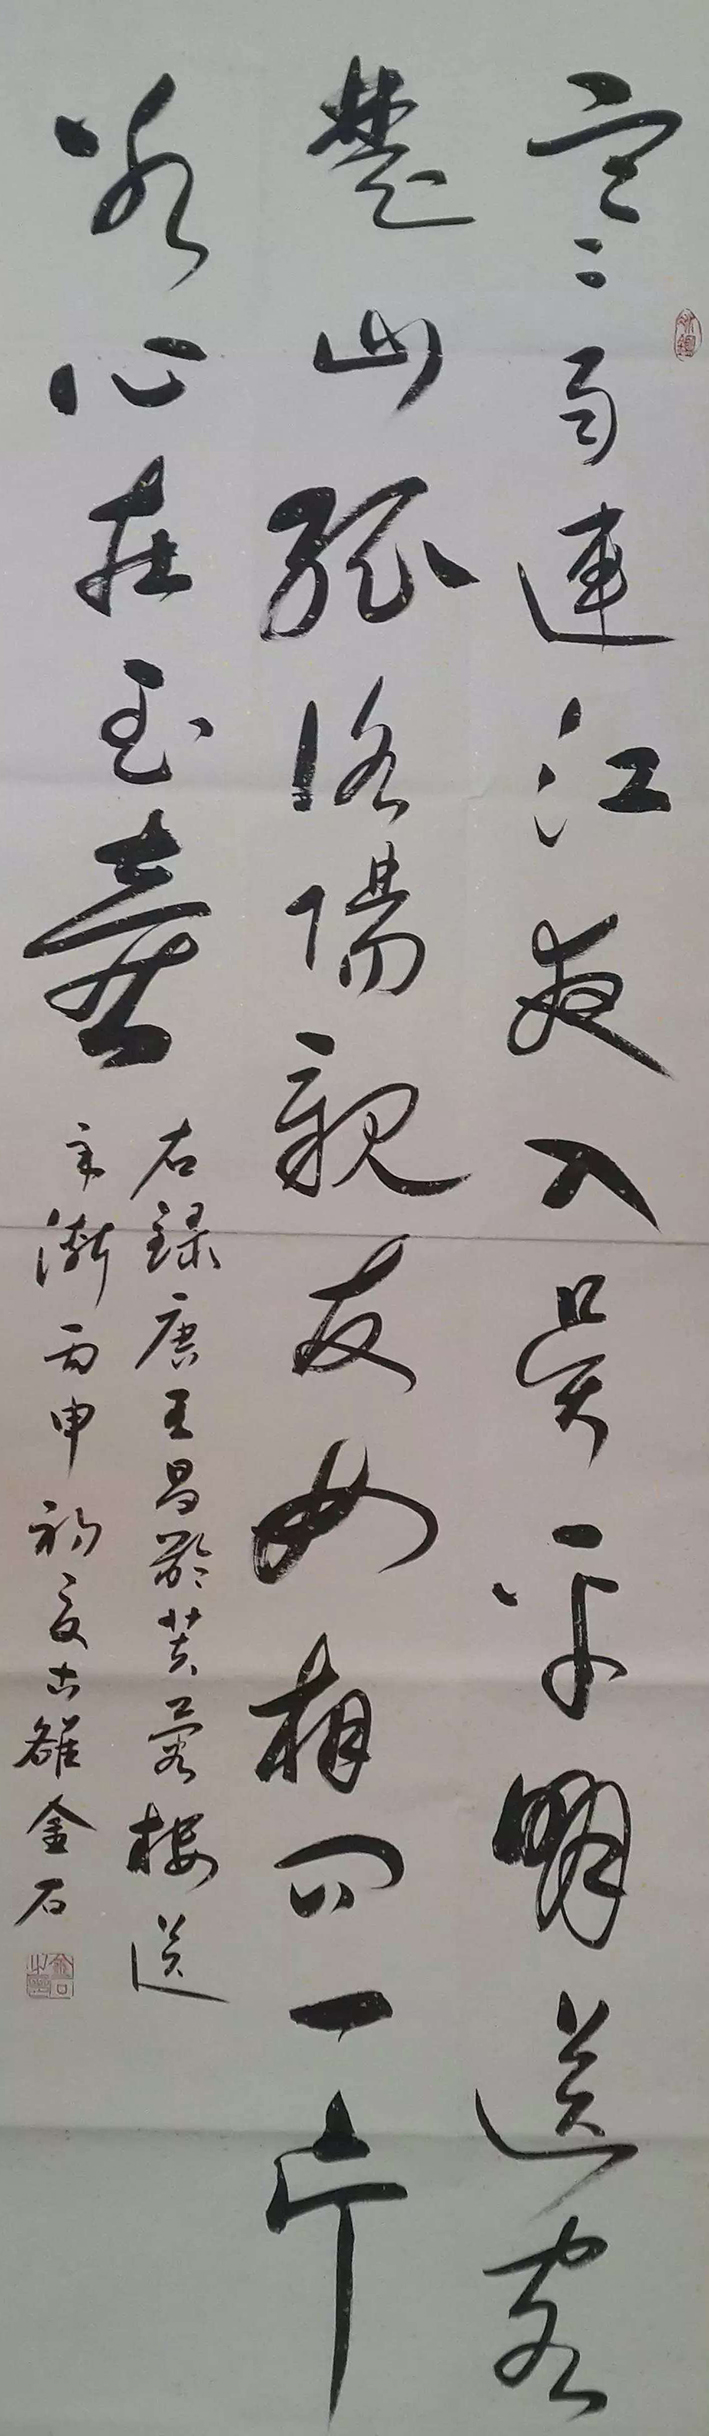 寒雨連江夜入吳平明送客
楚山孤洛陽親友如相問一片
冰心在玉壺
右録唐王昌齡芙蓉樓送
辛漸丙申初夏古雒金石